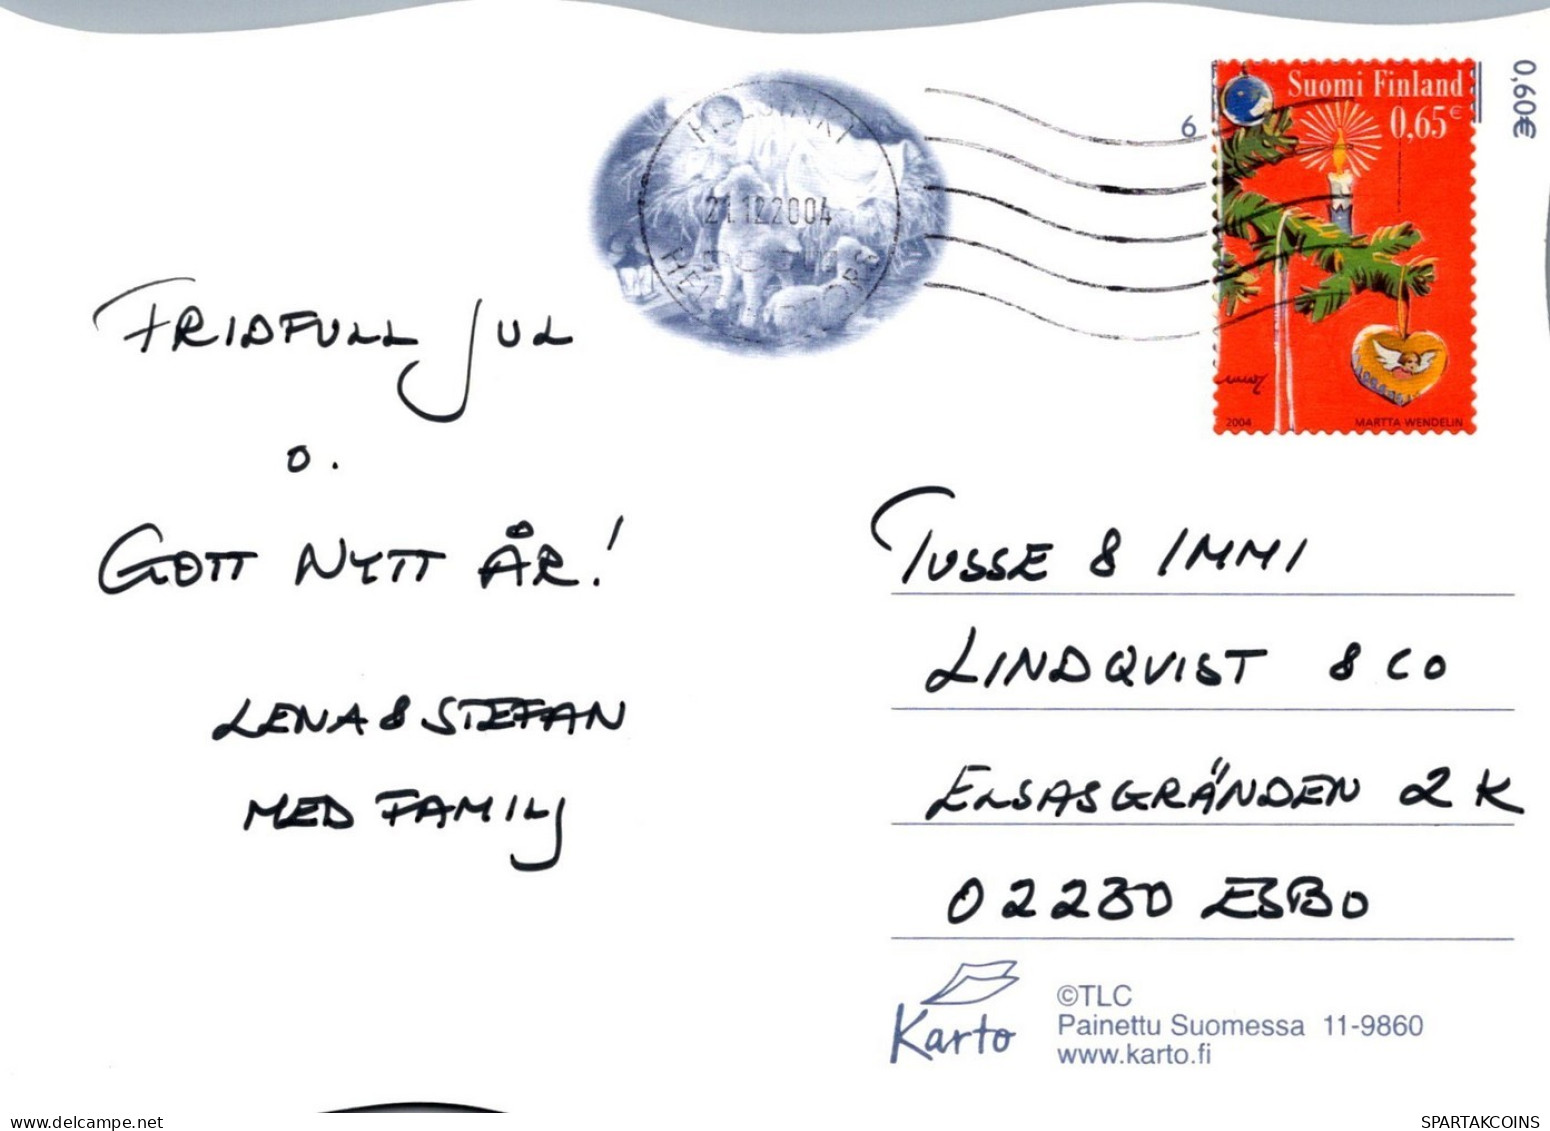 0,60€
6
Suomi Finland
0,65€
HELSINKI
21.12.2004
2004 MARTTA WENDELIN
FRIDFULL JUL
O.
GOTT NYTT ÅR!
LENA & STEFAN
MED FAMILJ
TUSSE & IMMI
LINDQVIST & CO
ELSASGRÄNDEN 2 K
02230 ESBO
Karto
©TLC
Painettu Suomessa 11-9860
www.karto.fi
delcampe.net
SPARTAKCOINS